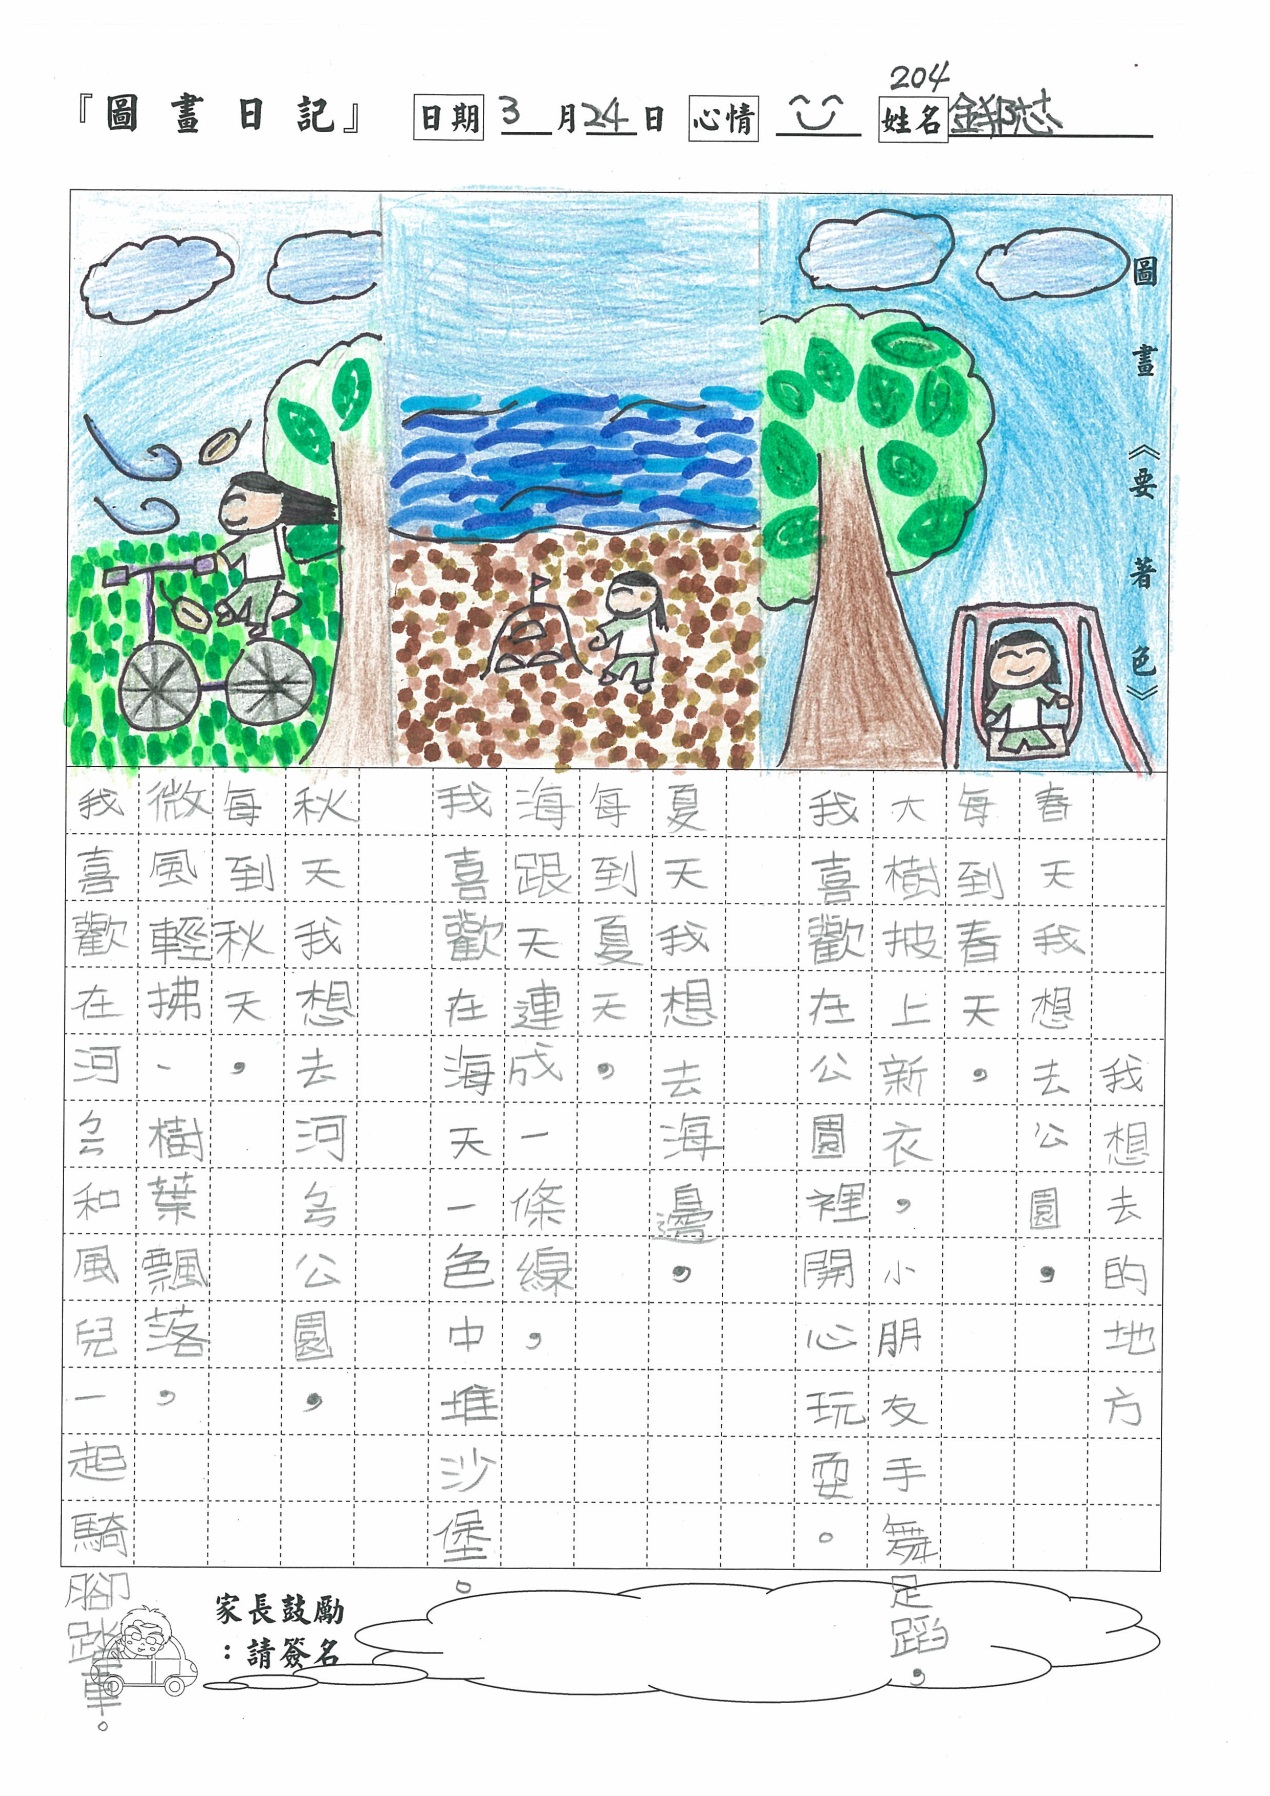 204
『圖畫日記』 日期 3月24日 心情 姓名
圖畫《要著色》
我想去的地方
春天我想去公園，
每到春天，
大樹披上新衣，小朋友手舞足蹈，
我喜歡在公園裡開心玩耍。
夏天我想去海邊，
每到夏天，
海跟天連成一條線，
我喜歡在海天一色中堆沙堡。
秋天我想去河ㄅㄢ公園，
每到秋天，
微風輕拂、樹葉飄落，
我喜歡在河ㄅㄢ和風兒一起騎腳踏車。
家長鼓勵
：請簽名